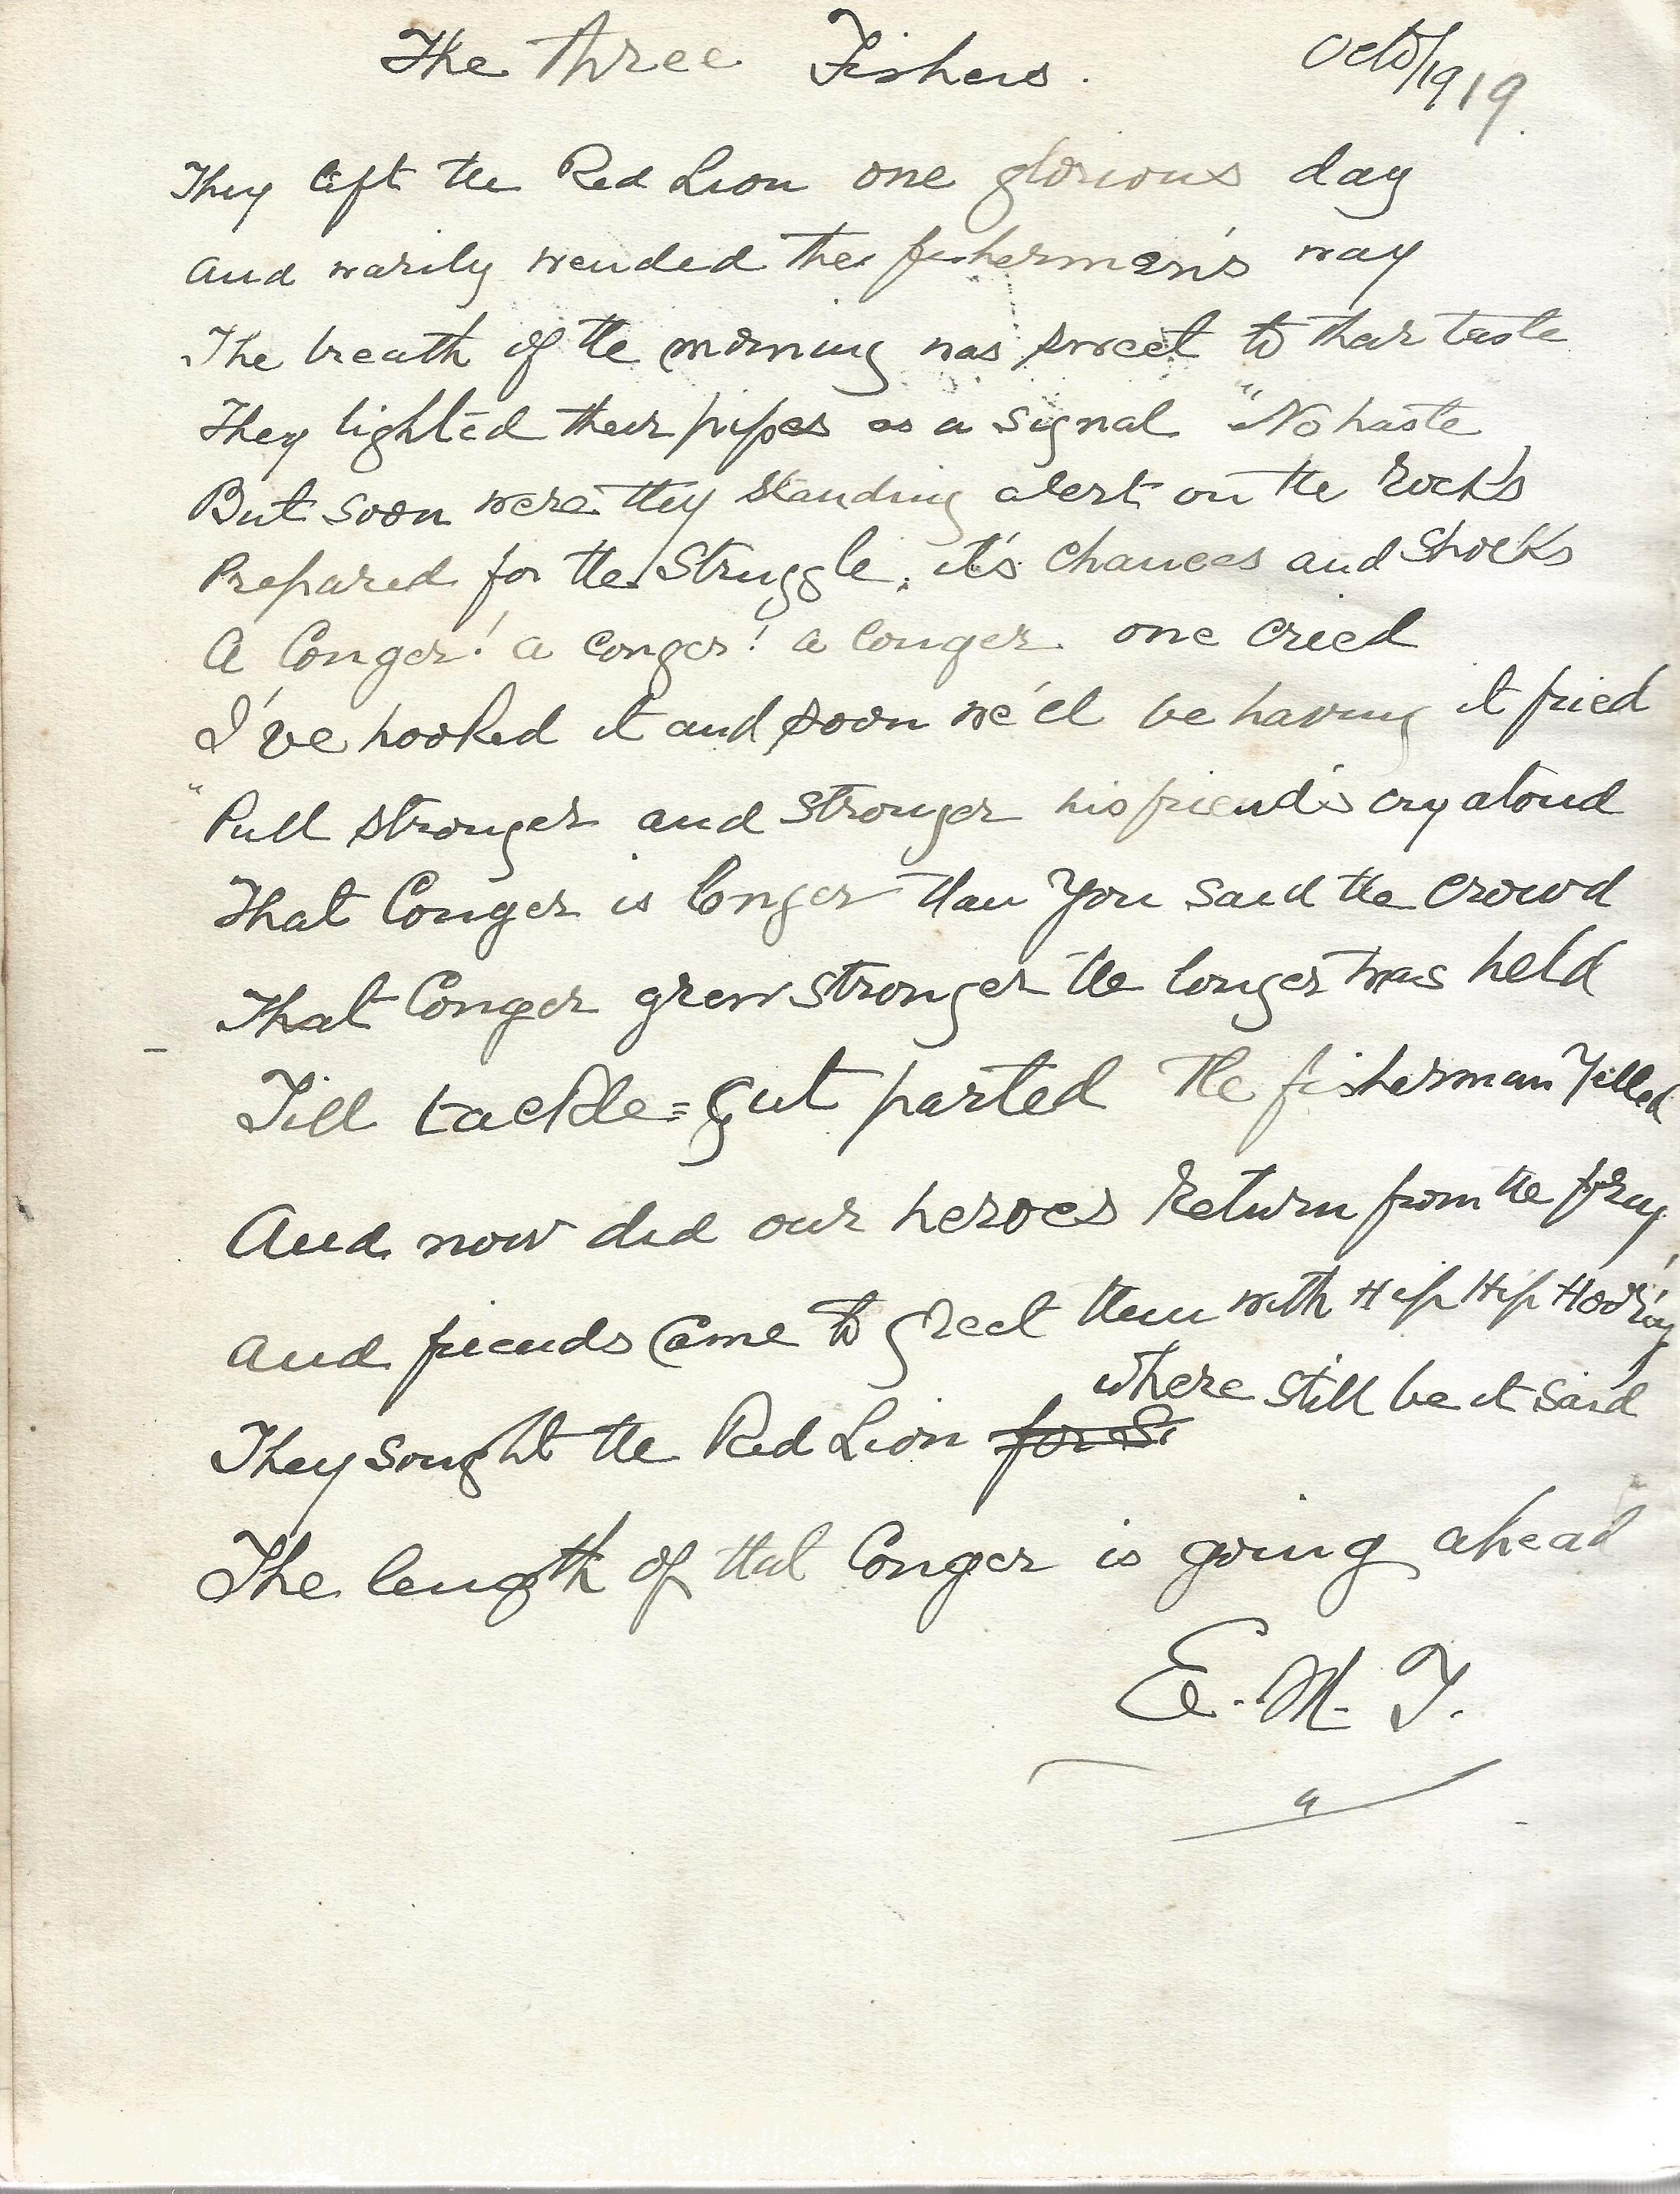 The Three Fishers. Octo/1919.
They left the Red Lion one glorious day
And warily wended the fishermen's way
The breath of the morning was sweet to their taste
They lighted their pipes as a signal "No haste
But soon were they standing alert on the rocks
Prepared for the struggle, it's chances and shocks
A Conger! a conger! a conger one cried
I've hooked it and soon we'll be having it fried
"Pull stronger and stronger his friend's cry aloud
That Conger is longer than you said the crowd
That Conger grew stronger the longer was held
Till tackle=gut parted The fisherman Yelled
And now did our heroes return from the fray
And friends came to greet them with Hip Hip Hooray
where still be it said
They sought the Red Lion for S.
The length of that Conger is going ahead"
E. M. T.